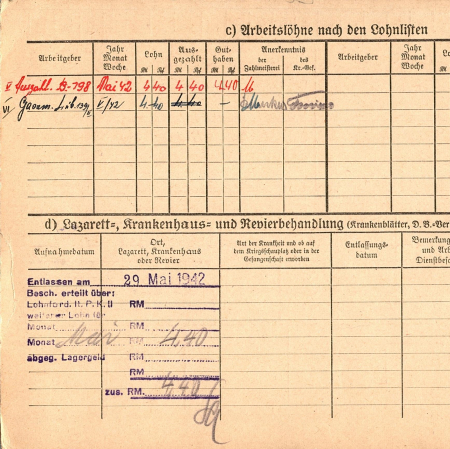 c) Arbeitslöhne nach den Lohnlisten
Arbeitgeber
Jahr Monat Woche
Lohn
Aus-gezahlt
Gut-haben
Anerkenntnis
Arbeitgeber
Jahr Monat Woche
Lo
RM Rpf RM Rpf RM Rpf
der Zahlmeisterei
des Kr.-Gef.
Mai 42 4 40 4 40 4 40
VI V/42 4 40 4 40 –
d) Lazarett-, Krankenhaus- und Revierbehandlung (Krankenblätter, D. B.-Ver
Aufnahmedatum
Ort, Lazarett, Krankenhaus oder Revier
Art der Krankheit und ob auf dem Kriegsschauplatz oder in der Gefangenschaft erworben
Entlassungs-datum
Bemerkung und Art Dienstbesch
Entlassen am 29 Mai 1942
Besch. erteilt über:
Lohnford. lt. P. K. II RM
weiterer Lohn für
Monat RM
Monat Mai 4,40
abgeg. Lagergeld RM
RM
zus. RM. 4,40